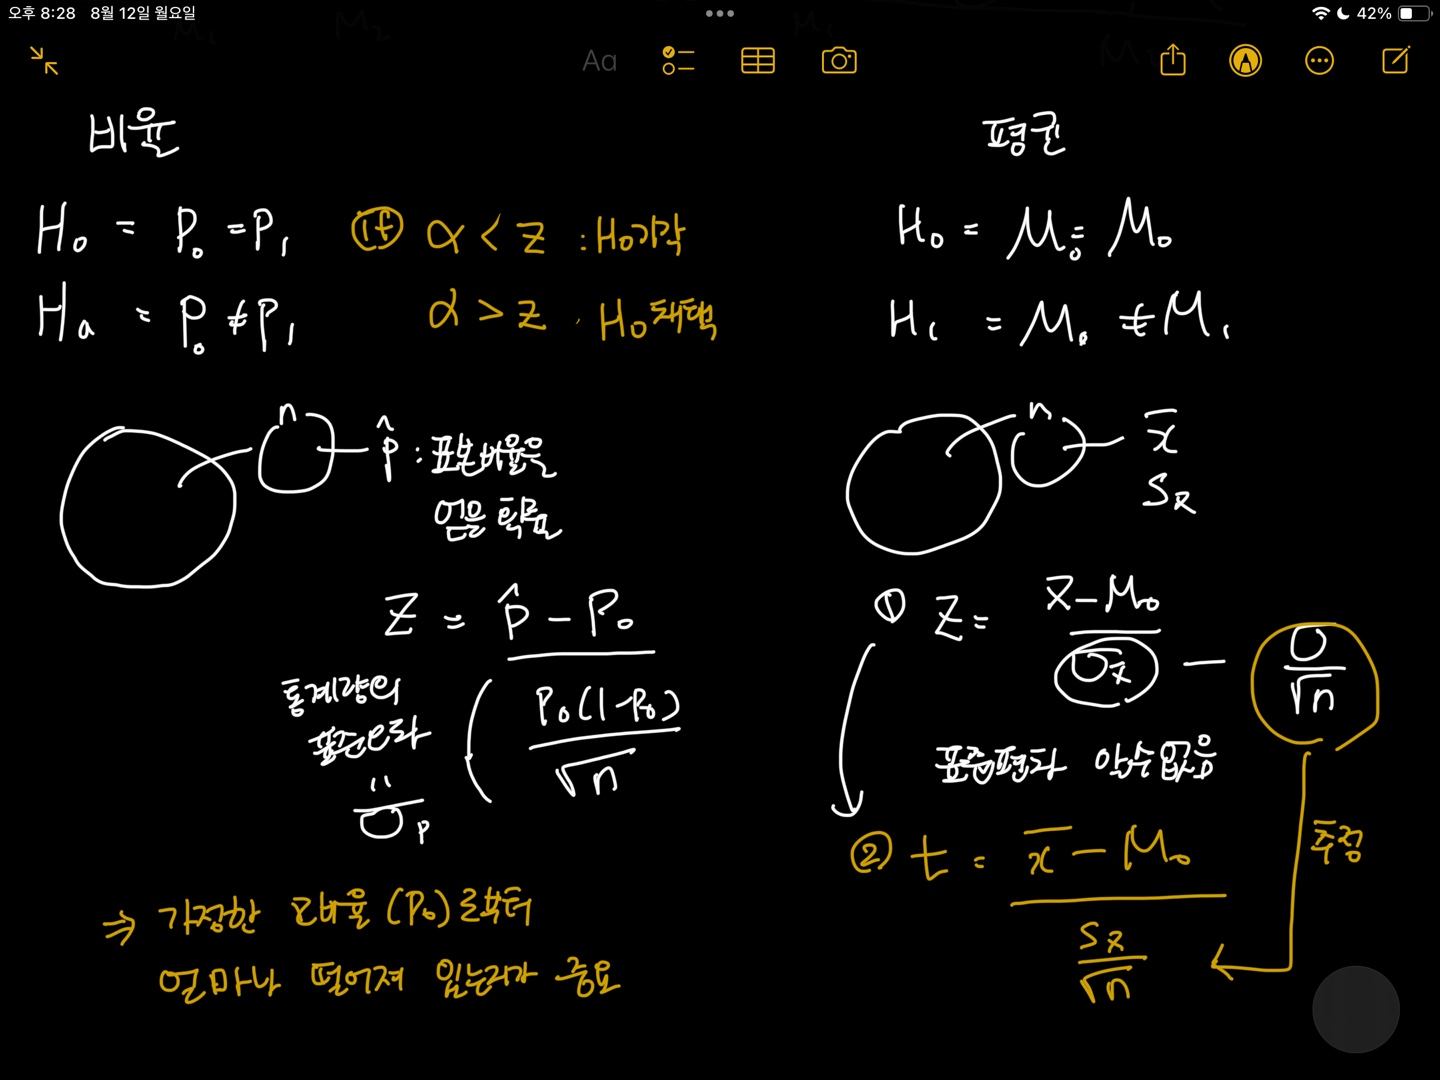 오후 8:28 8월 12일 월요일
42%
Aa
비율
H₀ = P₀ = P₁
Hₐ = P₀ ≠ P₁
if α < Z : H₀기각
α > Z . H₀채택
n
p̂ : 표본비율을
얻을 확률
Z = p̂ - P₀
P₀(1-P₀)
√n
통계량의
표준오차
=
σₚ
⇒ 가정한 모비율(P₀)로부터
얼마나 떨어져 있는지가 중요
평균
H₀ = M₀ = M₀
H₁ = M₀ ≠ M₁
n
x̄
Sx̄
① Z = x̄ - M₀
σx̄ - σ
√n
표준편차 알수없음
추정
② t = x̄ - M₀
Sx̄
√n